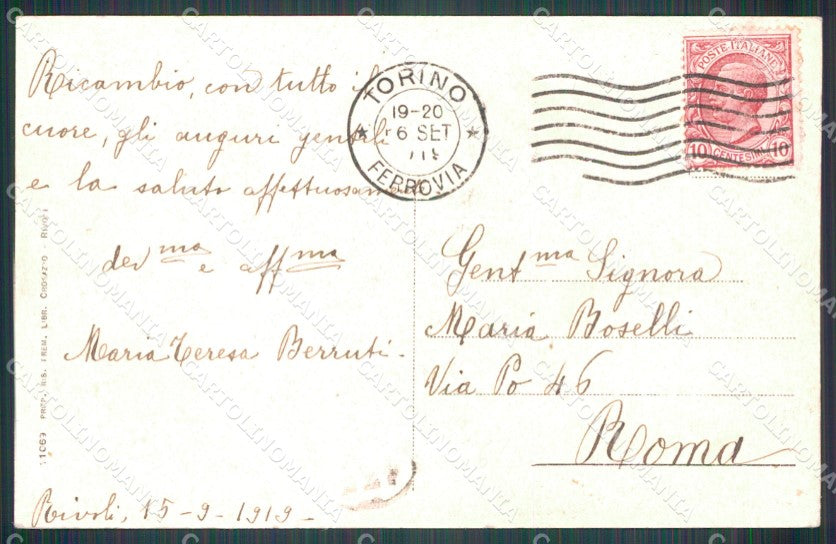 Ricambio, con tutto il
cuore, gli auguri gentili
e la saluto affettuosamente
dev ma e aff ma
Maria Teresa Berruti.
Rivoli, 15-9-1919-
11069 PROP. RIS. PREM. LIBR. CHOMAZIO - RIVOLI
TORINO
19-20
16 SET
FERROVIA
POSTE ITALIANE
10 CENTESIMI 10
Gent ma Signora
Maria Boselli
Via Po 46
Roma
CARTOLINOMANIA